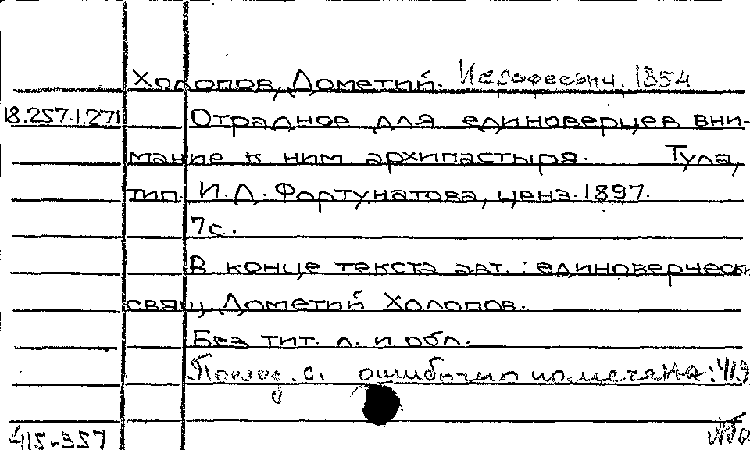 Холопов, Дометий. Иерофеевич, 1854
18.257.1.271 Отрадное для единоверцев вни-
мание к ним архипастыря. Тула,
тип. И.Д. Фортунатова, ценз. 1897.
7с.
В конце текста авт.: единоверческ
свящ. Дометий Холопов.
Без тит. л. и обл.
с. ошибочно помечена: 419
415-357